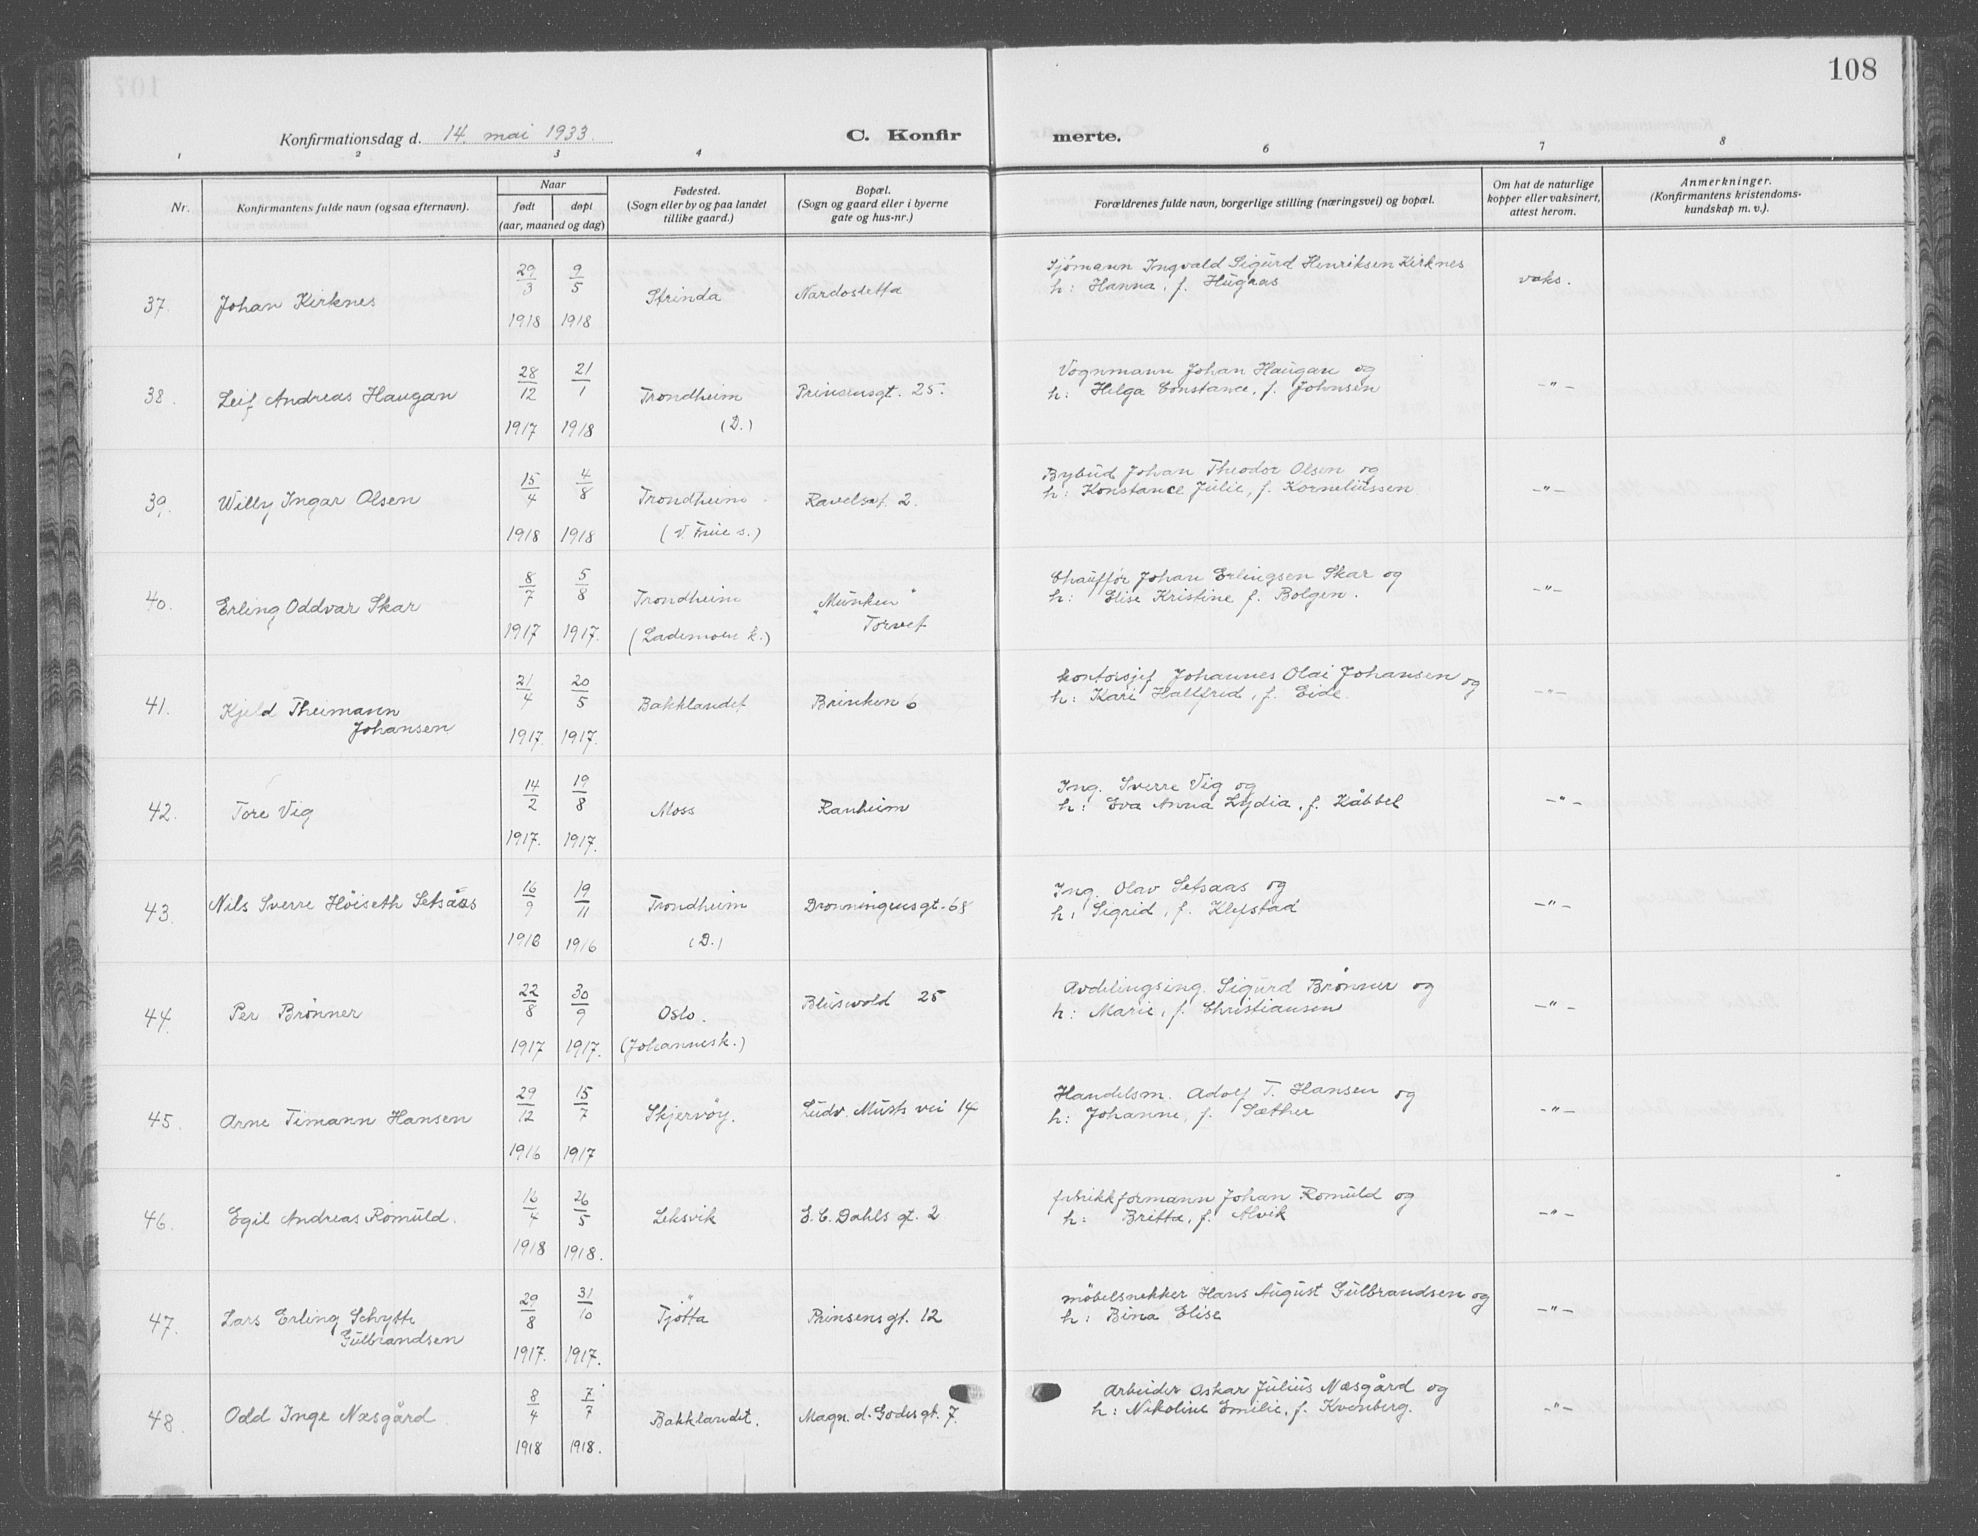 108
Konfirmationsdag d. 14. mai 1933.
C. Konfir
merte.
1 2 3 4 6 7 8
Nr.
Konfirmantens fulde navn (ogsaa efternavn).
Naar
født døpt
(aar, maaned og dag)
Fødested.
(Sogn eller by og paa landet
tillike gaard.)
Bopæl.
(Sogn og gaard eller i byerne
gate og hus-nr.)
Forældrenes fulde navn, borgerlige stilling (næringsvei) og bopæl.
Om hat de naturlige
kopper eller vaksinert,
attest herom.
Anmerkninger.
(Konfirmantens kristendoms-
kundskap m. v.).
37. Johan Kirknes 29/3 1918 9/5 1918 Strinda Nardosletta
Sjømann Ingvald Sigurd Henriksen Kirknes
h: Hanna, f. Hugaas
vaks.
38. Leif Andreas Haugan 28/12 1917 21/1 1918 Trondheim
(D.)
Prinsensgt. 25.
Vognmann Johan Haugan og
h: Helga Constance, f. Johnsen
-"-
39. Willy Ingar Olsen 15/4 1918 4/8 1918 Trondheim
(V. Frue s.)
2.
Bybud Johan Theodor Olsen og
h: Konstance Julie, f. Korneliussen
-"-
40. Erling Oddvar Skar 8/7 1917 5/8 1917. Trondheim
(Lademoen k.)
"Munken"
Torvet
Chauffør Johan Erlingsen Skar og
h: Elise Kristine f. Bolgen.
-"-
41. Kjeld Theimann
Johansen
21/4 1917. 20/5 1917. Bakklandet Brinken 6
kontorsjef Johannes Olai Johansen og
h: Kari Hallfrid, f. Eide.
-"-
42. Tore Vig 14/2 1917. 19/8 1917. Moss Ranheim
Ing. Sverre Vig og
h: Eva Anna Lydia, f. Kåbbel
-"-
43. Nils Sverre Höiseth Setsaas 16/9 1916 19/11 1916 Trondheim
(D.)
Dronningensgt. 68
Ing. Olav Setsaas og
h: Sigrid, f. Klefstad
-"-
44. Per Brønner 22/8 1917 30/9 1917. Oslo.
(Johannesk.)
Blusvold 25
Avdelingsing. Sigurd Brønner og
h: Marie, f. Christiansen
-"-
45. Arne Timann Hansen 29/12 1916 15/7 1917 Skjervøy. Ludv. Musts vei 14
Handelsm. Adolf T. Hansen og
h: Johanne, f. Sæther
-"-
46. Egil Andreas Romuld. 16/4 1918 26/5 1918. Leksvik E. C. Dahls gt. 2
fabrikkformann Johan Romuld og
h: Britta, f. Alvik
-"-
47. Lars Erling Schytte
Gulbrandsen
29/8 1917. 31/10 1917. Tjötta Prinsensgt. 12
møbelsnekker Hans August Gulbrandsen og
h: Bina Elise
-"-
48. Odd Inge Næsgård. 8/4 1918 7/7 1918. Bakklandet. Magn. d. Godes gt. 7.
Arbeider Oskar Julius Næsgård og
h: Nikoline Emilie, f. Kvenberg.
-"-